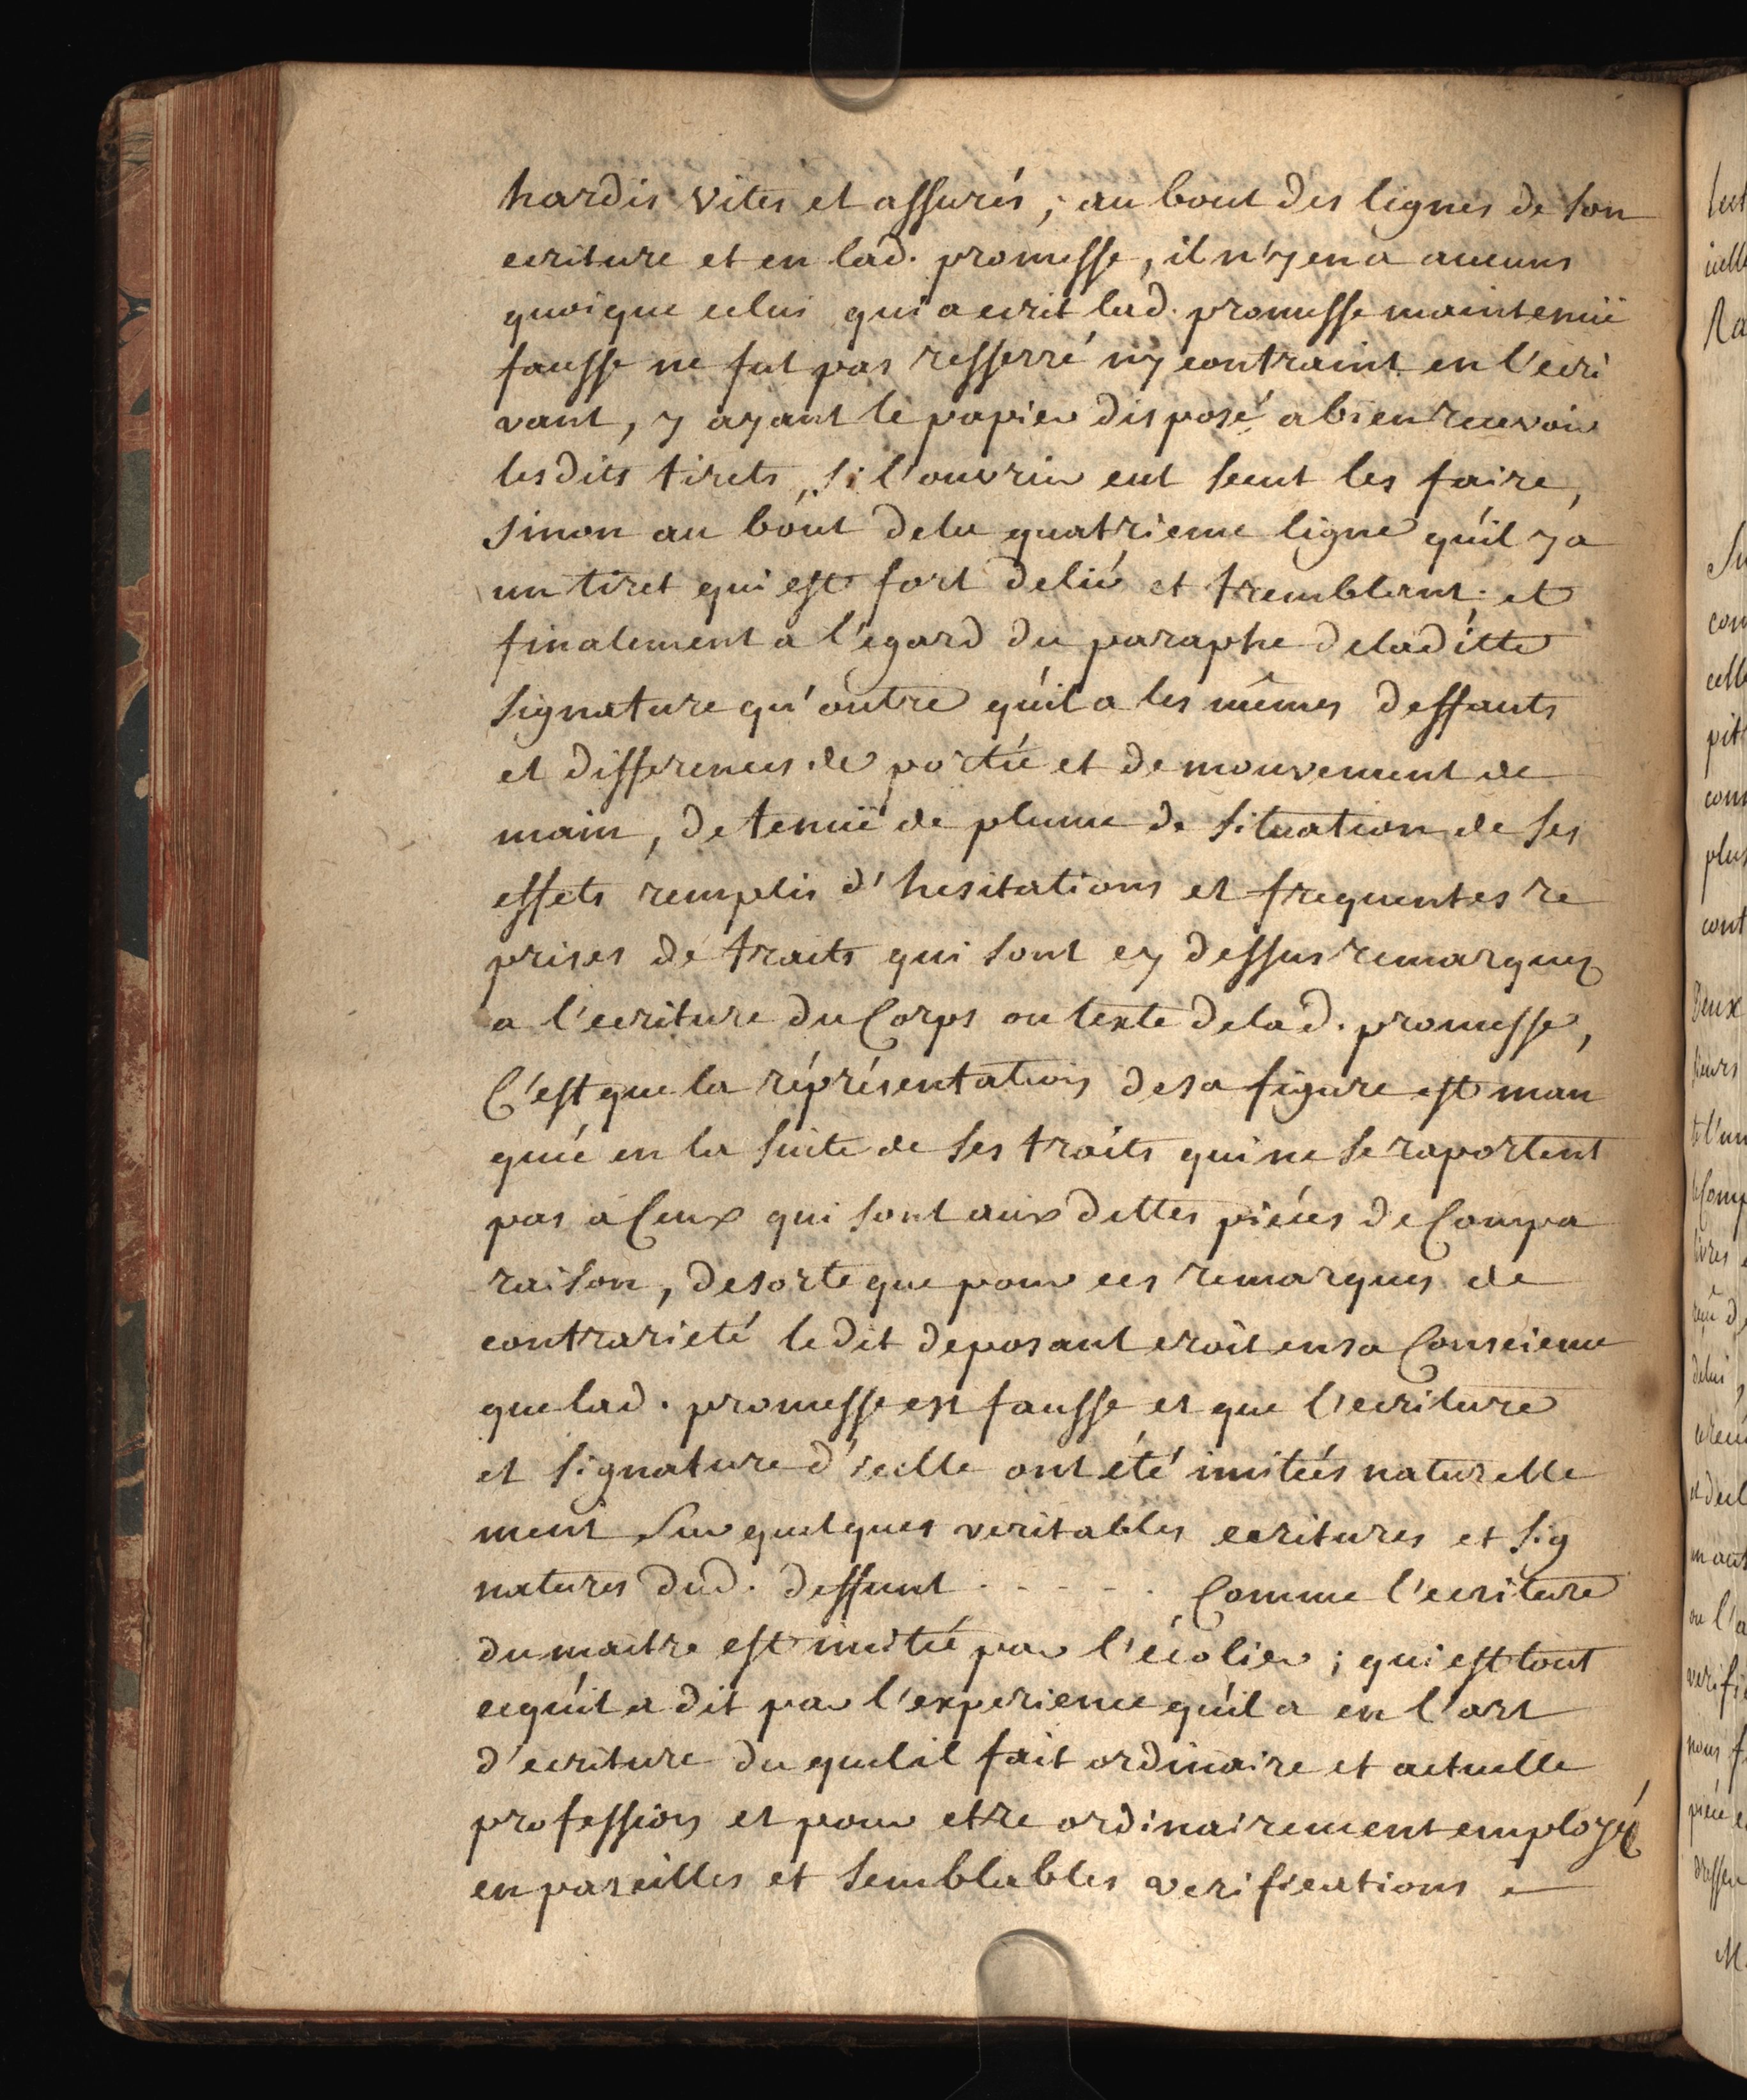 hardis vites et assurés ; au bout des lignes de son
ecriture et en lad. promesse, il n'y en a aucuns
quoique celui qui a ecrit lad. promesse maintenuë
fausse ne fut pas resserré ny contraint en l'ecri
vant, y ayant le papier disposé a bien recevoir
lesdits tirets, si l'ouvrier eut sceut les faire,
sinon au bout dela quatrieme ligne qu'il y a
un tiret qui est fort delié et tremblant ; et
finalement a l'egard du paraphe deladitte
signature qu'outre qu'il a les mêmes deffauts
et differences de portée et de mouvement de
main, de tenuë de plume de situation de ses
effets remplis d'hesitations et frequentes re
prises de traits qui sont cy dessus remarquez
a l'ecriture du Corps ou texte delad. promesse,
C'est que la réprésentation de sa figure est man
quée en la suite de ses traits qui ne se raportent
pas à Ceux qui sont aux dittes piéces de Compa
raison, desorte que pour ces remarques de
contrarieté ledit deposant croit en sa Conscience
que lad. promesse est fausse et que l'ecriture
et signature d'icelle ont été imitées naturelle
ment sur quelques veritables ecritures et sig
natures dud. deffunt . - - - - . Comme l'ecriture
du maitre est imitée par l'écolier ; qui est tout
ce qu'il a dit par l'experience qu'il a en l'art
d'ecriture du quel il fait ordinaire et actuelle
profession et pour etre ordinairement employé
en pareilles et semblables verifications